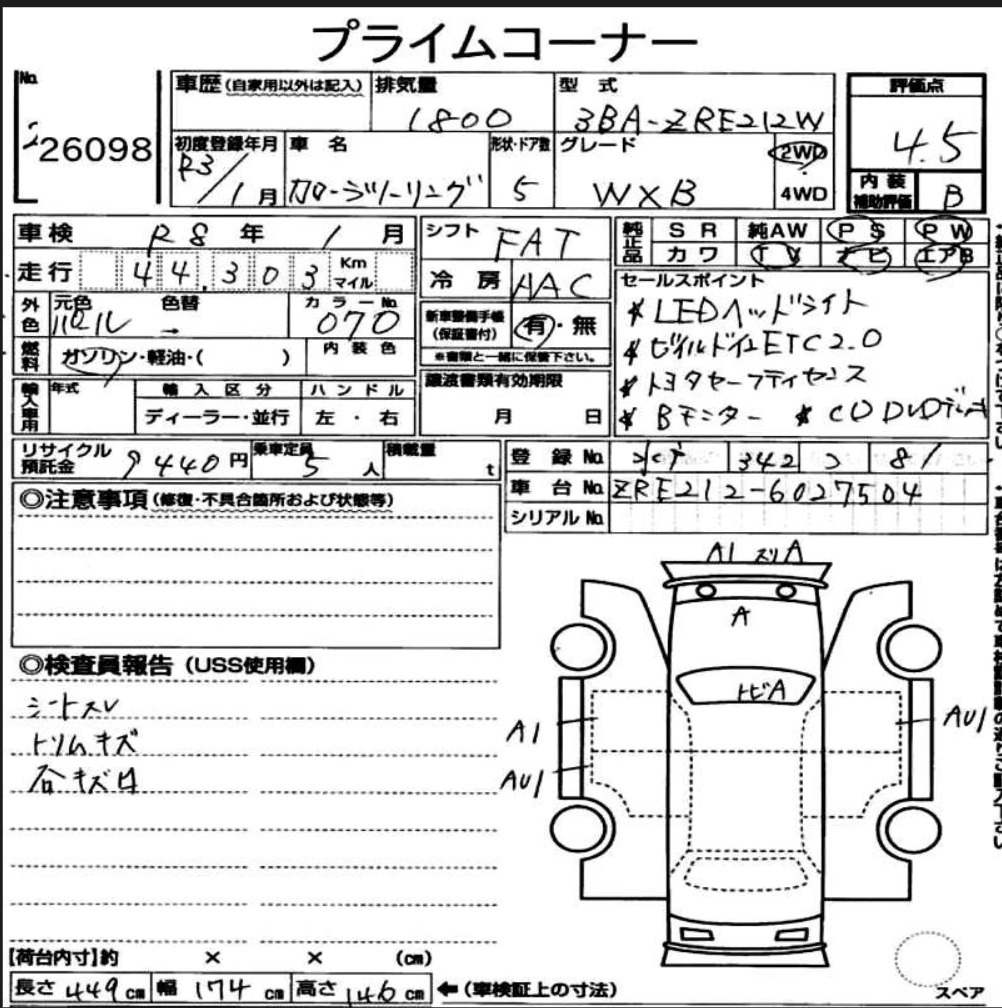 プライムコーナー
No.
26098
車歴 (自家用以外は記入) 排気量 型 式 評価点
1800 3BA-ZRE212W 4.5
初度登録年月 車 名 形状・ドア数 グレード 2WD
R3/1月 カローラツーリング 5 WXB 4WD
内装補助評価 B
車検 R8 年 1 月
走行 44,303 Km マイル
外色 元色 色替 カラーNo.
パール → 070
燃料 ガソリン・軽油・( ) 内装色
輸入車用 年式 輸入区分 ハンドル
ディーラー・並行 左・右
シフト FAT
冷房 AAC
新車整備手帳(保証書付) 有・無
※書類と一緒に保管下さい。
譲渡書類有効期限
月 日
純正品 SR 純AW PS PW
カワ TV ナビ エアB
セールスポイント
* LEDヘッドライト
* ビルドインETC2.0
* トヨタセーフティセンス
* Bモニター * CD DVDデッキ
リサイクル預託金 9440円 乗車定員 5人 積載量 t
登録No. 342 81
車台No. ZRE212-6027504
シリアルNo.
◎注意事項(修復・不具合箇所および状態等)
◎検査員報告(USS使用欄)
シートスレ
トリムキズ
石キズ有
A1 スリA
A
トビA
A1
AU1
AU1
スペア
【荷台内寸】約 × × (cm)
長さ 449 cm 幅 174 cm 高さ 146 cm ←(車検証上の寸法)